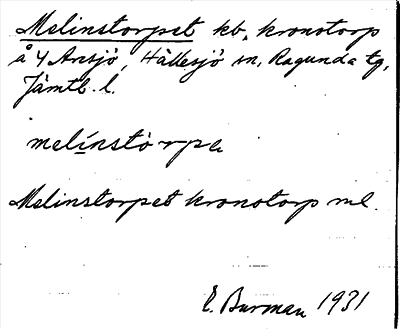 Melinstorpet kb, kronotorp
å 4 Ansjö, Hällesjö sn, Ragunda tg,
Jämtl. l.
melínstòrpe
Melinstorpet kronotorp ml.
E. Burman 1931